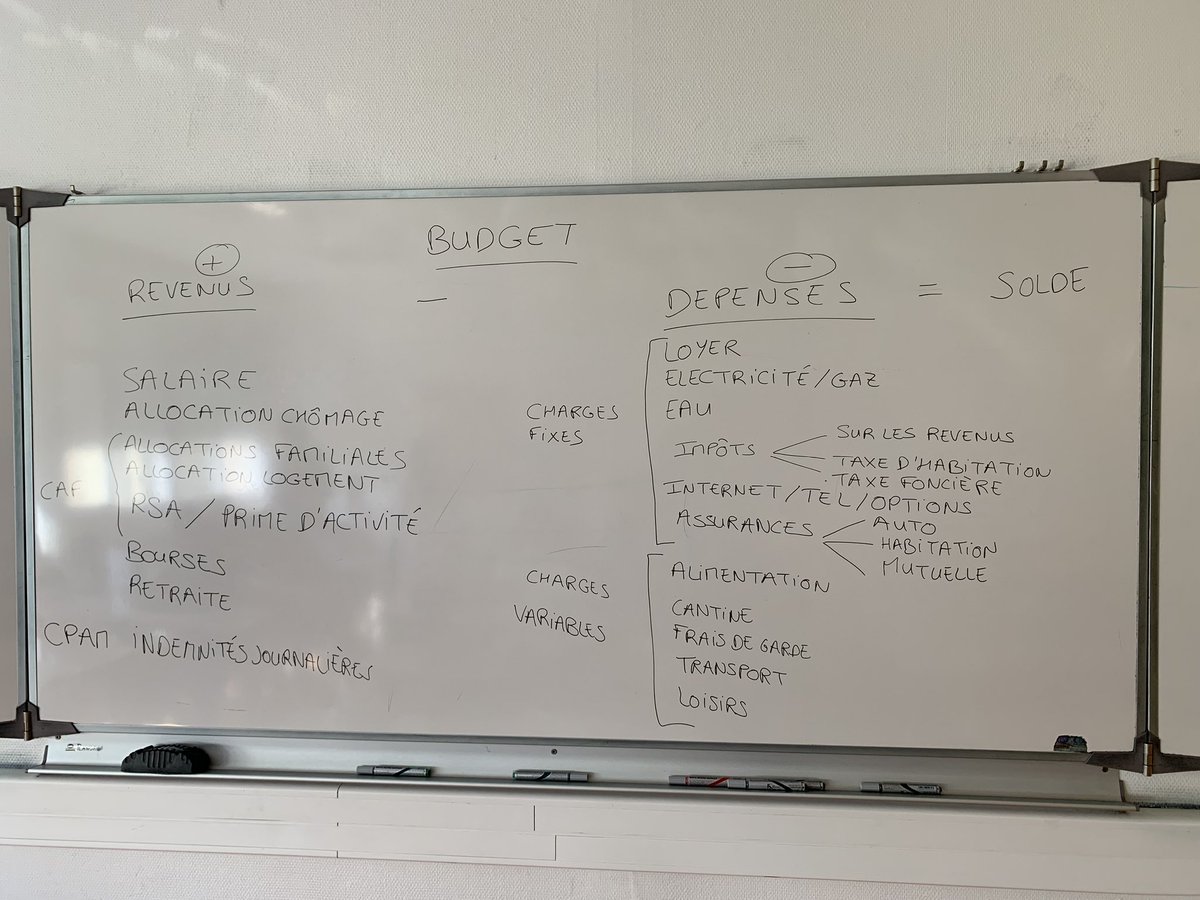 BUDGET
+
REVENUS
-
-
DEPENSES = SOLDE
SALAIRE
ALLOCATION CHÔMAGE
CAF
ALLOCATIONS FAMILIALES
ALLOCATION LOGEMENT
RSA / PRIME D'ACTIVITÉ
BOURSES
RETRAITE
CPAM INDEMNITÉS JOURNALIÈRES
CHARGES
FIXES
LOYER
ELECTRICITÉ/GAZ
EAU
IMPÔTS
SUR LES REVENUS
TAXE D'HABITATION
TAXE FONCIÈRE
INTERNET/TEL/OPTIONS
ASSURANCES
AUTO
HABITATION
MUTUELLE
CHARGES
VARIABLES
ALIMENTATION
CANTINE
FRAIS DE GARDE
TRANSPORT
LOISIRS